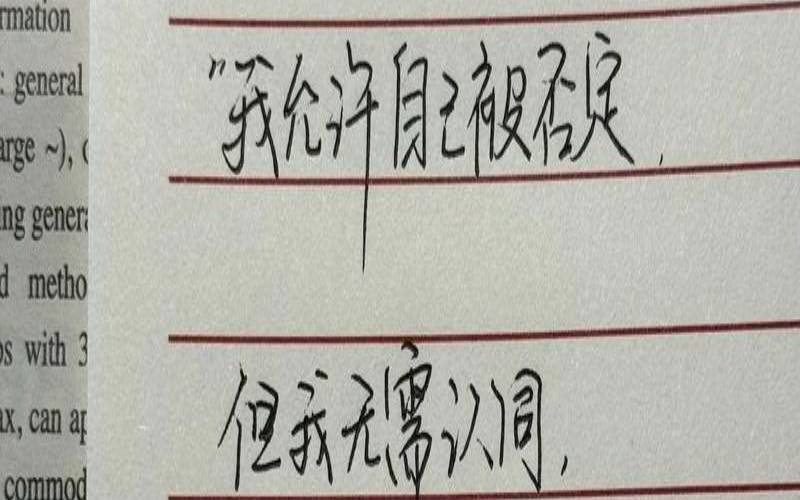 rmation
: general
arge ~), (
ing genera
d metho
os with 3
ax, can ap
commod
"我允许自己被否定,
但我无需认同,